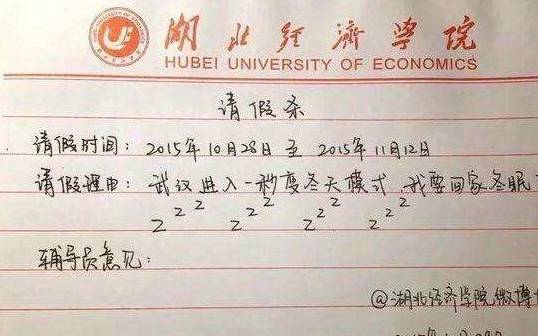 湖北经济学院
HUBEI UNIVERSITY OF ECONOMICS
请假条
请假时间：2015年10月28日至2015年11月12日
请假理由：武汉进入一秒变冬天模式，我要回家冬眠
zzz zzz zzz zzz
辅导员意见：
@湖北经济学院微博